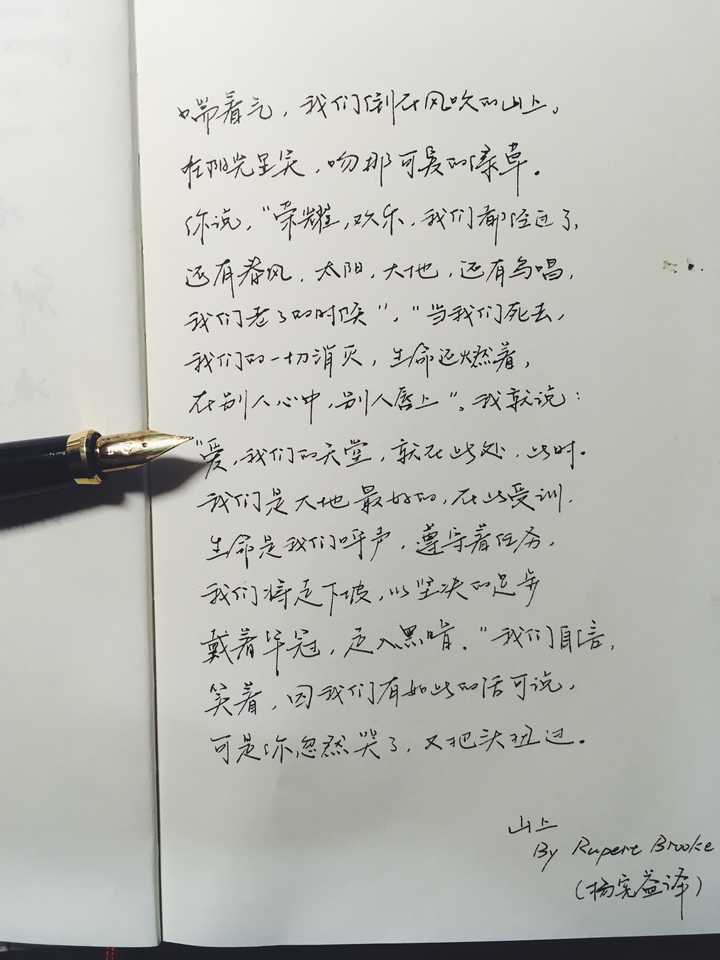 喘着气，我们倒在风吹的山上。
在阳光里笑，吻那可爱的绿草。
你说，“荣耀，欢乐，我们都经过了，
还有春风，太阳，大地，还有鸟唱，
我们老了的时候”，“当我们死去，
我们的一切消灭，生命还燃着，
在别人心中，别人唇上”。我就说：
“爱，我们的天堂，就在此处，此时。
我们是大地最好的，在此受训，
生命是我们呼声，遵守着任务，
我们将走下坡，以坚决的足步
戴着华冠，走入黑暗。”我们自信，
笑着，因我们有如此的话可说，
可是你忽然哭了，又把头扭过。
山上
By Rupert Brooke
（杨宪益译）